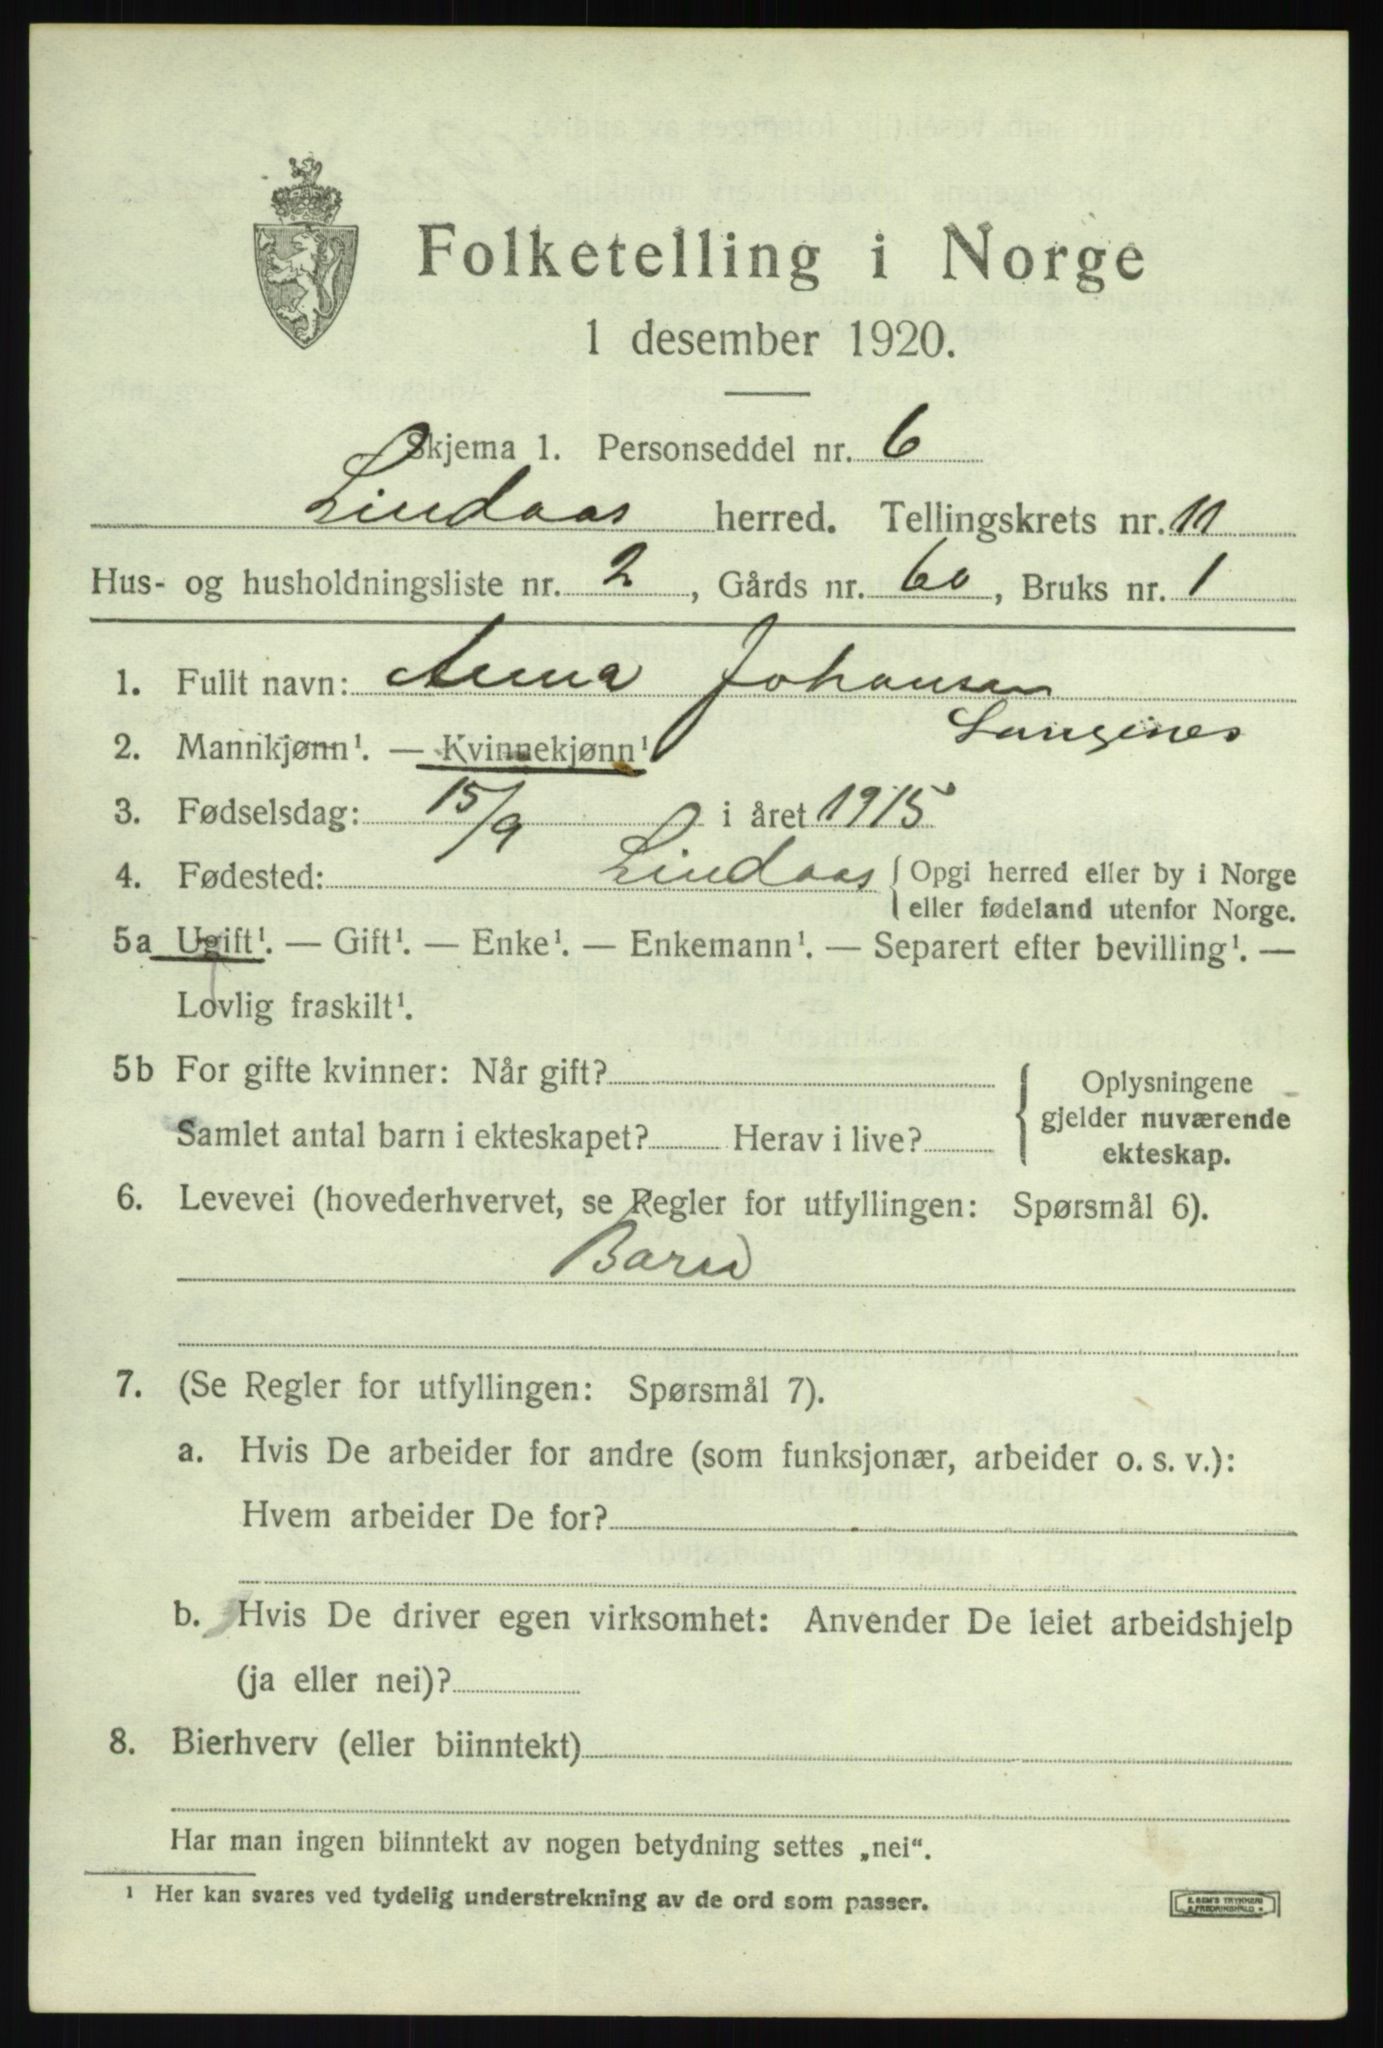 Folketelling i Norge
1 desember 1920.
Skjema 1. Personseddel nr. 6
Lindaas herred. Tellingskrets nr. 11
Hus- og husholdningsliste nr. 2, Gårds nr. 60, Bruks nr. 1
1. Fullt navn: Anna Johansen
2. Mannkjønn¹. — Kvinnekjønn¹
3. Fødselsdag: 15/9 i året 1915
4. Fødested: Lindaas { Opgi herred eller by i Norge
eller fødeland utenfor Norge.
5a Ugift¹. — Gift¹. — Enke¹. — Enkemann¹. — Separert efter bevilling¹. —
Lovlig fraskilt¹.
5b For gifte kvinner: Når gift?
Samlet antal barn i ekteskapet? Herav i live?
Oplysningene
gjelder nuværende
ekteskap.
6. Levevei (hovederhvervet, se Regler for utfyllingen: Spørsmål 6).
Barn
7. (Se Regler for utfyllingen: Spørsmål 7).
a. Hvis De arbeider for andre (som funksjonær, arbeider o. s. v.):
Hvem arbeider De for?
b. Hvis De driver egen virksomhet: Anvender De leiet arbeidshjelp
(ja eller nei)?
8. Bierhverv (eller biinntekt)
Har man ingen biinntekt av nogen betydning settes „nei“.
¹ Her kan svares ved tydelig understrekning av de ord som passer.